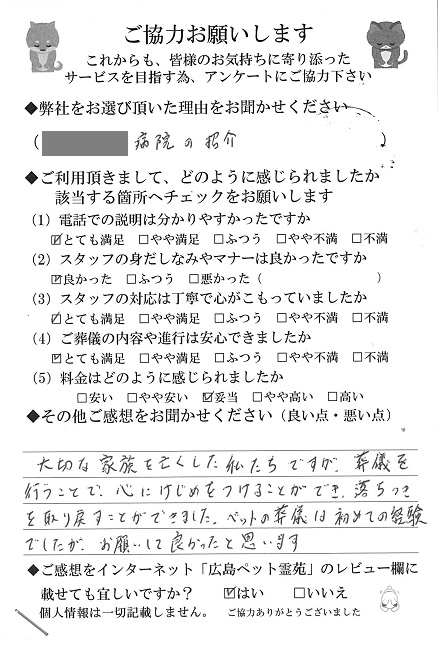 ご協力お願いします
これからも、皆様のお気持ちに寄り添った
サービスを目指す為、アンケートにご協力下さい
◆弊社をお選び頂いた理由をお聞かせください
( 病院の紹介 )
◆ご利用頂きまして、どのように感じられましたか
該当する箇所へチェックをお願いします
(1) 電話での説明は分かりやすかったですか
☑とても満足 □やや満足 □ふつう □やや不満 □不満
(2) スタッフの身だしなみやマナーは良かったですか
☑良かった □ふつう □悪かった ( )
(3) スタッフの対応は丁寧で心がこもっていましたか
☑とても満足 □やや満足 □ふつう □やや不満 □不満
(4) ご葬儀の内容や進行は安心できましたか
☑とても満足 □やや満足 □ふつう □やや不満 □不満
(5) 料金はどのように感じられましたか
□安い □やや安い ☑妥当 □やや高い □高い
◆その他ご感想をお聞かせください (良い点・悪い点)
大切な家族を亡くした私たちですが、葬儀を
行うことで、心にけじめをつけることができ、落ちつき
を取り戻すことができました。ペットの葬儀は初めての経験
でしたが、お願いして良かったと思います
◆ご感想をインターネット「広島ペット霊苑」のレビュー欄に
載せても宜しいですか? ☑はい □いいえ
個人情報は一切記載しません。 ご協力ありがとうございました